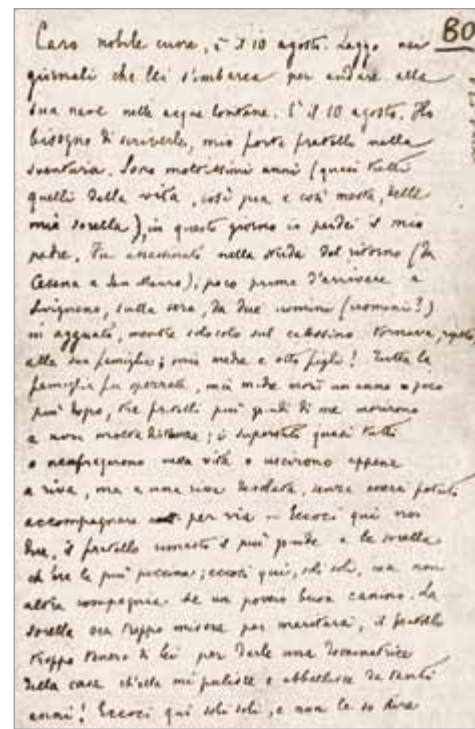 80
Caro nobile cuore, è il 10 agosto. Leggo nei
giornali che lei s'imbarca per andare alla
sua nave nelle acque lontane. È il 10 agosto. Ho
bisogno di scriverle, mio forte fratello nella
sventura. Sono moltissimi anni (quasi tutti
quelli della vita, così pura e così mesta, della
mia sorella), in questo giorno io perdei il mio
padre. Fu assassinato nella strada del ritorno (da
Cesena a San Mauro), poco prima d'arrivare a
Savignano, sulla sera, da due uomini (uomini?)
in agguato, mentre solo solo sul calessino tornava,
alla sua famiglia; mia madre e otto figli! Tutta la
famiglia fu spezzata, mia madre morì un anno o poco
più dopo, tre fratelli più grandi di me morirono
a non molta distanza; i superstiti quasi tutti
o naufragarono nella vita o uscirono appena
a riva, ma a una riva desolata, senza avere potuto
accompagnare per via — Eccoci qui noi
due, il fratello rimasto il più grande e la sorella
ch'era la più piccina; eccoci qui, soli soli, con non
altra compagnia che un povero buon canino. La
sorella era troppo misera per maritarsi, il fratello
troppo tenero di lei per darle una dominatrice
della casa ch'ella mi pulisce e abbellisce da tanti
anni! Eccoci qui soli soli, e non le so dire